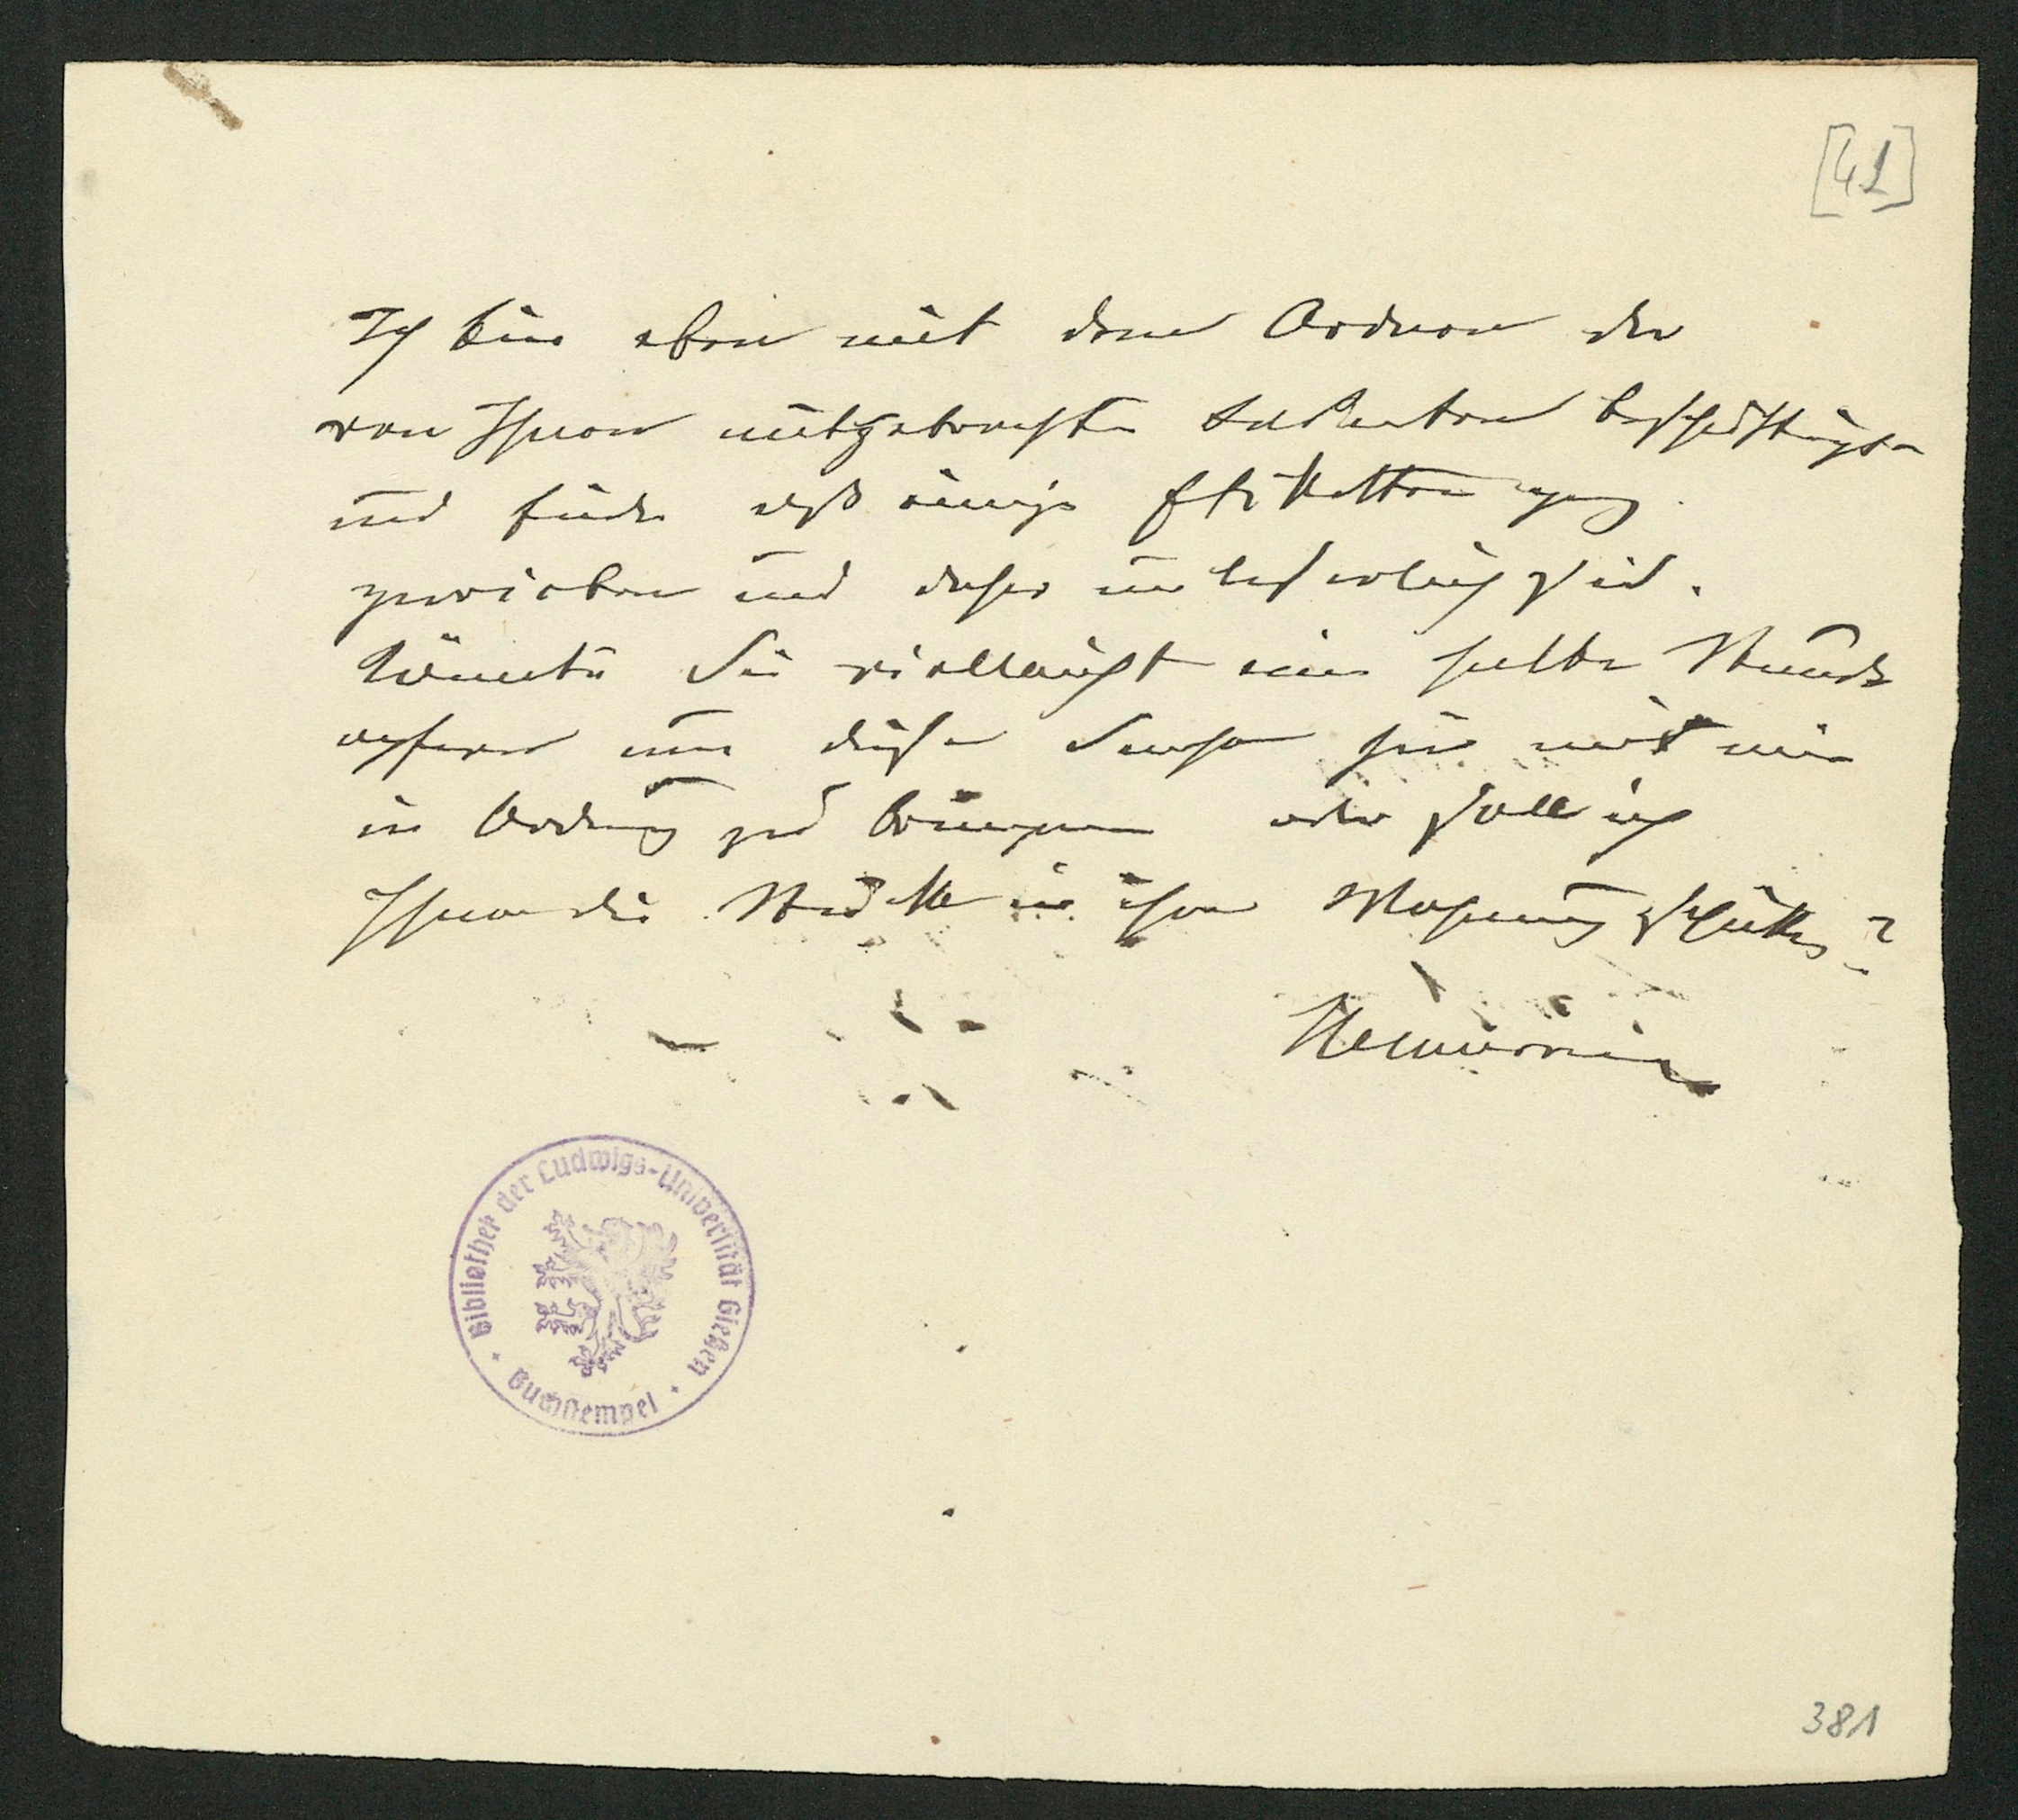 [41]
Ich bin eben mit dem Ordnen der
von Ihnen mitgebrachten beschäftigt
und finde daß einige Etiketten ganz
zerrieben und daher unleserlich sind.
Könnten Sie vielleicht eine halbe Stunde
opfern um diese Sachen hier mit mir
in Ordnung zu bringen oder soll ich
Ihnen die Stücke in ihre Wohnung schicken?
Bibliothek der Ludwigs-Universität Gießen
Buchstempel
381